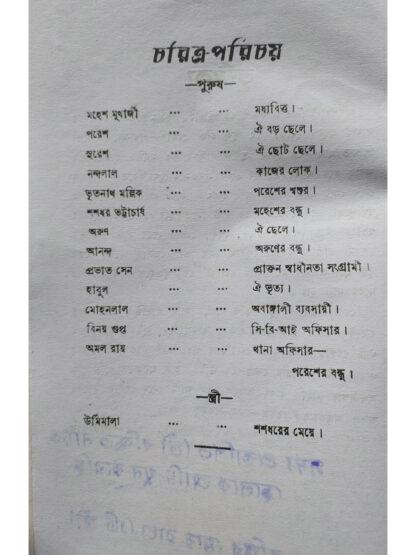 চরিত্র-পরিচয়
—পুরুষ—
মহেশ মুখার্জী ... ... মধ্যবিত্ত।
পরেশ ... ... ঐ বড় ছেলে।
সুরেশ ... ... ঐ ছোট ছেলে।
নন্দলাল ... ... কাজের লোক।
ভূতনাথ মল্লিক ... ... পরেশের শ্বশুর।
শশধর ভট্টাচার্য ... ... মহেশের বন্ধু।
অরুণ ... ... ঐ ছেলে।
আনন্দ ... ... অরুণের বন্ধু।
প্রভাত সেন ... ... প্রাক্তন স্বাধীনতা সংগ্রামী।
হাবুল ... ... ঐ ভৃত্য।
মোহনলাল ... ... অবাঙ্গালী ব্যবসায়ী।
বিনয় গুপ্ত ... ... সি-বি-আই অফিসার।
অমল রায় ... ... থানা অফিসার—
পরেশের বন্ধু।
—স্ত্রী—
উর্মিমালা ... ... শশধরের মেয়ে।